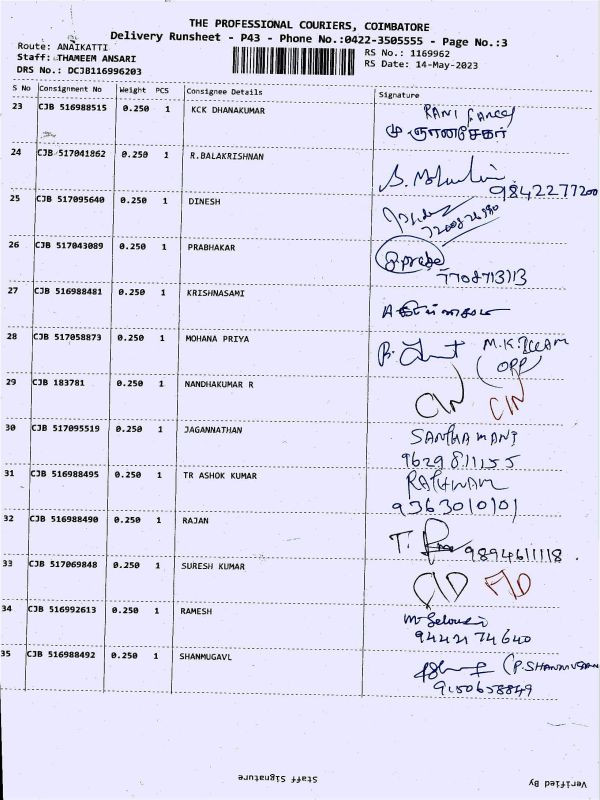 THE PROFESSIONAL COURIERS, COIMBATORE
Delivery Runsheet - P43 - Phone No.:0422-3505555 - Page No.:3
Route: ANAIKATTI
RS No.: 1169962
Staff: THAMEEM ANSARI
RS Date: 14-May-2023
DRS No.: DCJB116996203
S No Consignment No Weight PCS Consignee Details Signature
23 CJB 516988515 0.250 1 KCK DHANAKUMAR RANI
மு ஞானசேகர்
24 CJB 517041862 0.250 1 R.BALAKRISHNAN
9842277200
25 CJB 517095640 0.250 1 DINESH
26 CJB 517043089 0.250 1 PRABHAKAR prabe
7708713113
27 CJB 516988481 0.250 1 KRISHNASAMI
28 CJB 517058873 0.250 1 MOHANA PRIYA
OPP
29 CJB 183781 0.250 1 NANDHAKUMAR R
C/N C/N
30 CJB 517095519 1 0.250 JAGANNATHAN SANTHAMANI
9629811155
31 CJB 516988495 0.250 1 TR ASHOK KUMAR
9363010101
32 CJB 516988490 0.250 1 RAJAN
9894611118
33 CJB 517069848 0.250 1 SURESH KUMAR
34 CJB 516992613 0.250 1 RAMESH
9442174640
35 CJB 516988492 0.250 1 SHANMUGAVL (P.SHANMUGAM
9150658849
Staff Signature
Verified By